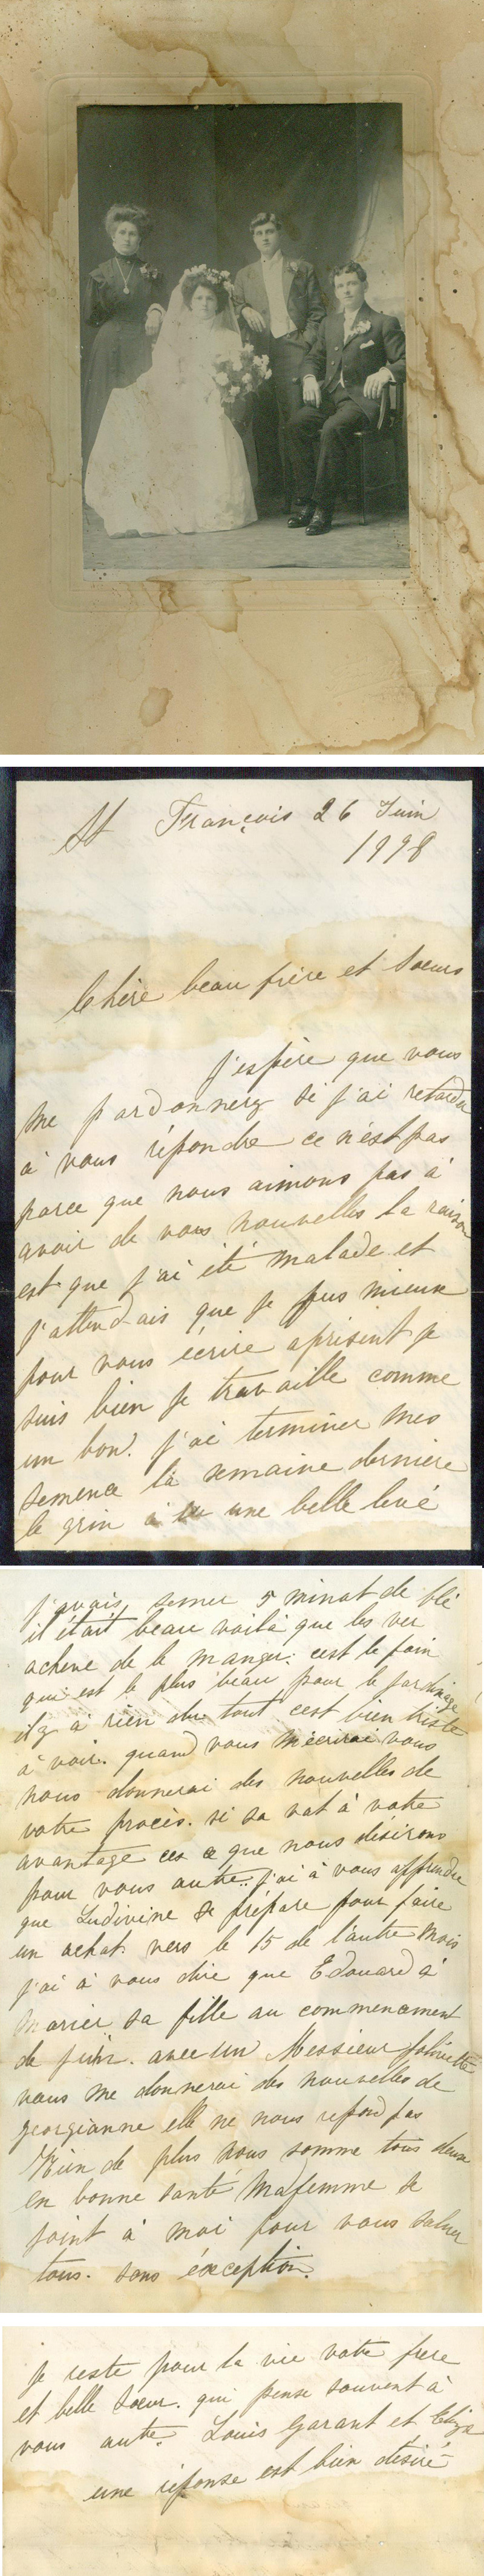 St François 26 Juin
1998
Chère beau frère et Soeurs
j'espère que vous
me pardonnerz si j'ai retarder
à vous répondre ce n'est pas
parce que nous aimons pas à
avoir de vos nouvelles la raison
est que j'ai été malade et
j'attendais que je fus mieux
pour vous écrire aprisent je
suis bien je travaille comme
un bon. j'ai terminer mes
semence la semaine dernière
le grin à eu une belle levé
j'avais semer 5 minot de blé
il était beau voilà que les ver
acheve de le manger. cest le foin
qui est le plus beau pour le jardinage
ily à rien du tout cest bien triste
à voir. quand vous mécrirai vous
nous donnerai des nouvelles de
votre procès. si sa vat à votre
avantage ces ce que nous désirons
pour vous autre. j'ai à vous apprendre
que Ludivine se prépare pour faire
un achat vers le 15 de l'autre mois
j'ai à vous dire que Edouard à
marier sa fille au commencement
de juin. avec un Messieur
vous me donnerai des nouvelles de
georgianne elle ne nous repond pas
Rien de plus nous somme tous deux
en bonne santé Ma femme se
joint à moi pour vous saluer
tous. sans éxception.
je reste pour la vie votre frere
et belle soeur. qui pense souvent à
vous autre. Louis Garant et
une réponse est bien désiré